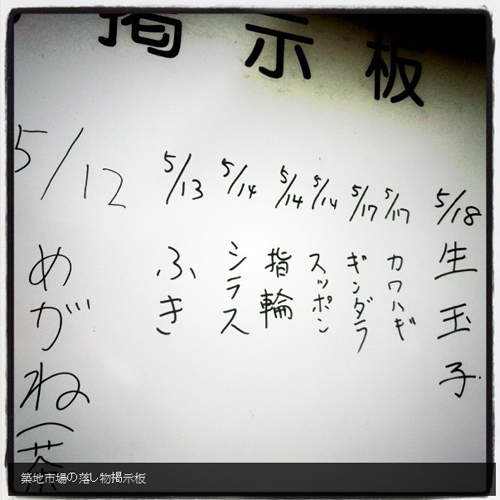 掲示板
5/18 生玉子
5/17 カワハギ
5/17 ギンダラ
5/14 スッポン
5/14 指輪
5/14 シラス
5/13 ふき
5/12 めがね(茶
築地市場の落し物掲示板